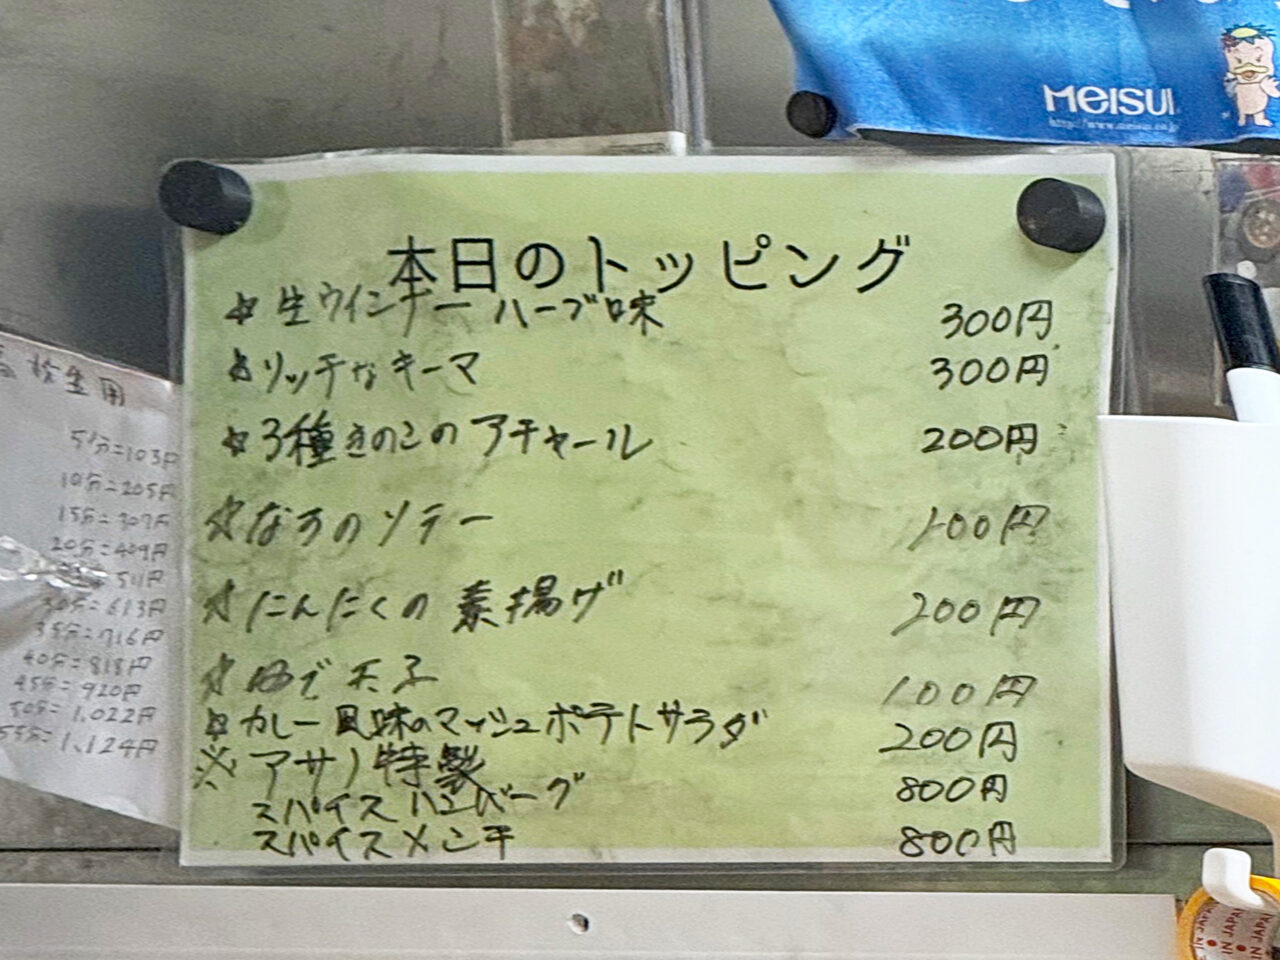 MEISUI
http://www.meisui.co.jp
本日のトッピング
☆生ウインナー ハーブ味 300円
☆リッチなキーマ 300円
☆3種きのこのアチャール 200円
☆なすのソテー 100円
☆にんにくの素揚げ 200円
☆ゆで玉子 100円
☆カレー風味のマッシュポテトサラダ 200円
※アサノ特製
スパイスハンバーグ 800円
スパイスメンチ 800円
高校生用
5分=103円
10分=205円
15分=307円
20分=409円
511円
30分=613円
35分=716円
40分=818円
45分=920円
50分=1,022円
55分=1,124円
IN JAPAN
IN JAPAN